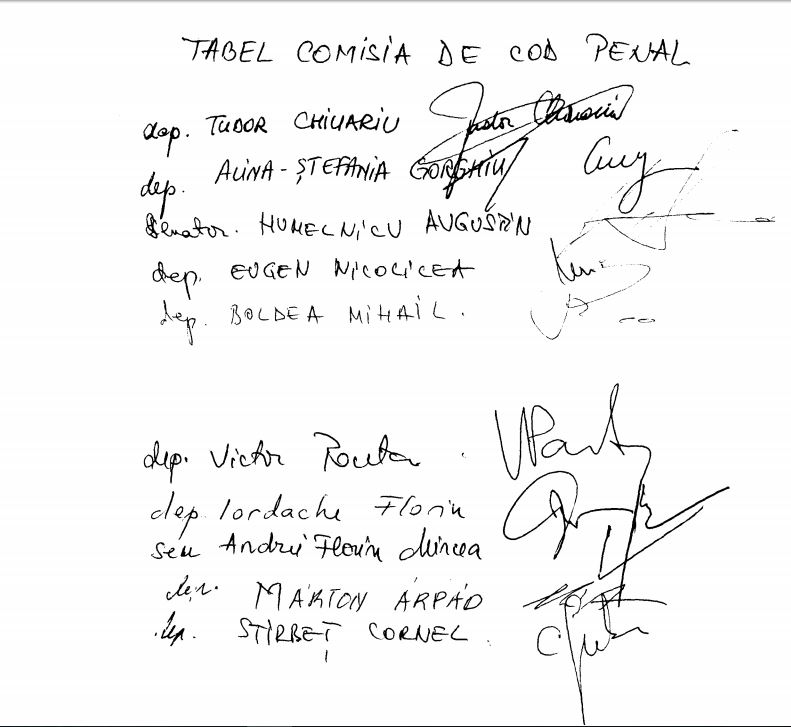 TABEL COMISIA DE COD PENAL
dep. TUDOR CHIUARIU
dep. ALINA-ȘTEFANIA GORGHIU
Senator. HUMELNICU AUGUSTIN
dep. EUGEN NICOLICEA
dep. BOLDEA MIHAIL.
dep. Victor
dep Iordache Florin
sen Andrei Florin Mircea
dep. MÁRTON ÁRPÁD
dep. STIRBEȚ CORNEL.